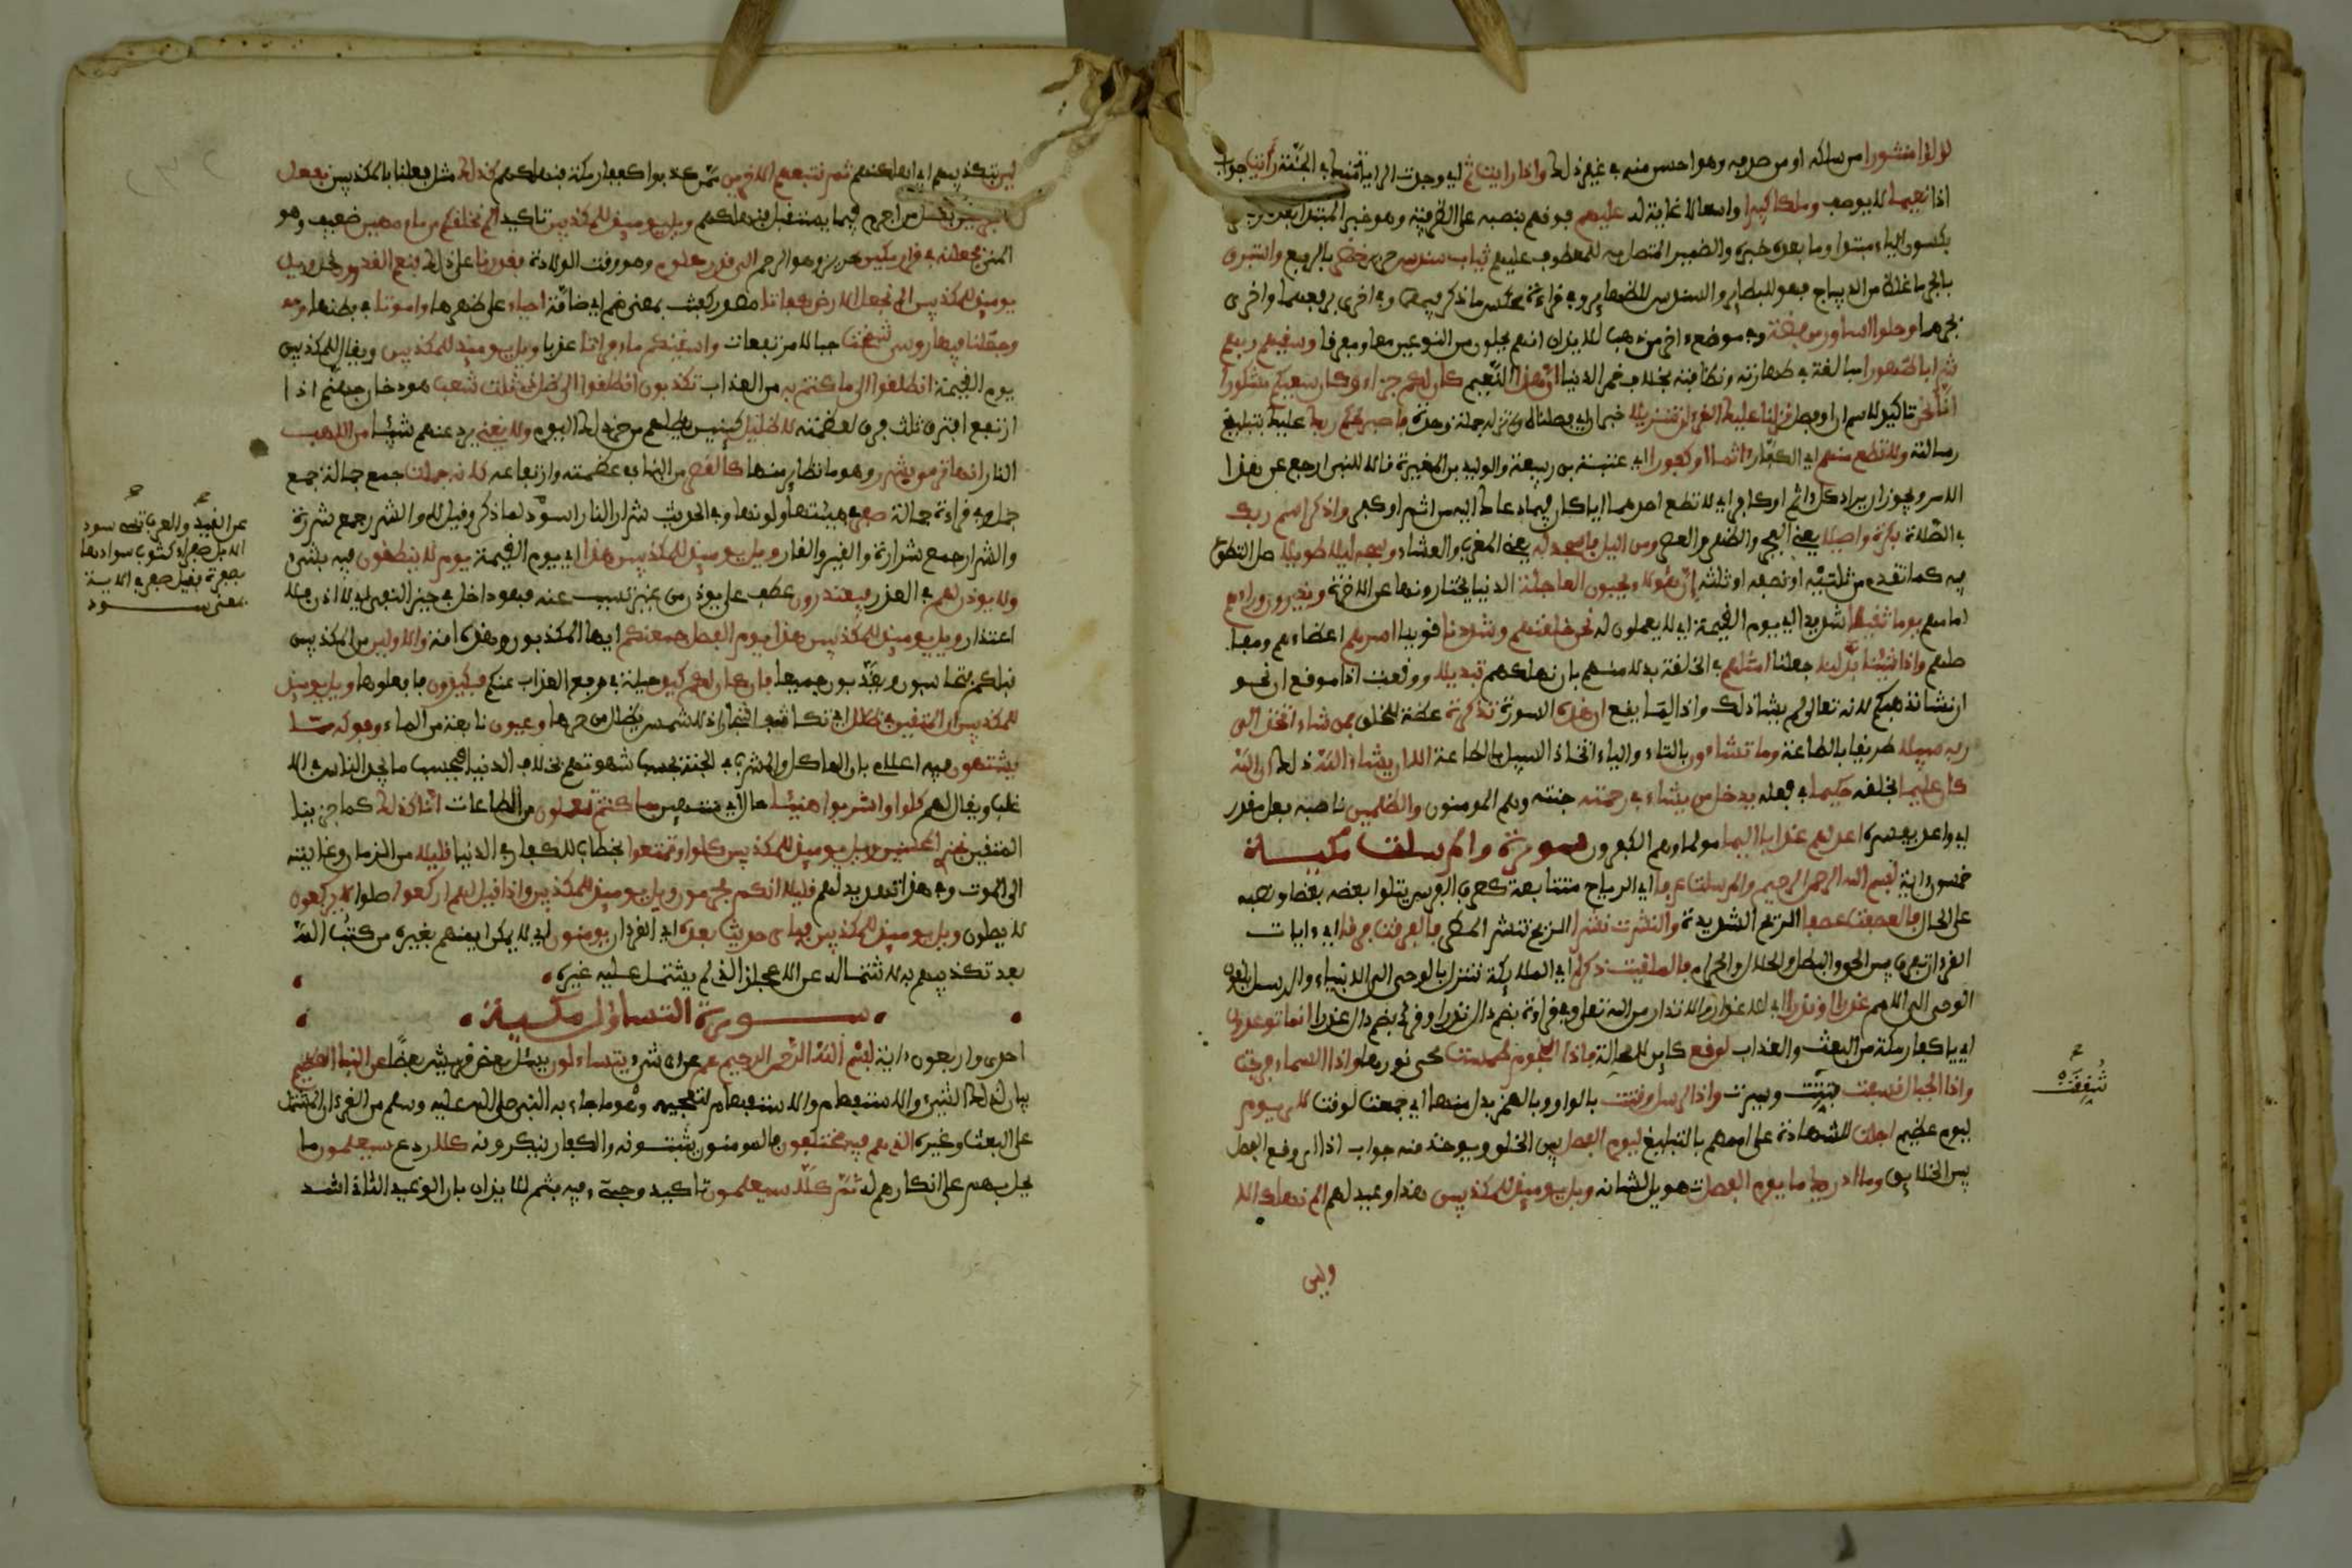 لؤلؤا منثورا من سلكه او من صدفه وهو احسن منه في غير ذلك واذا رايت ثم اي وجدت الروية منك في الجنة رايت جواب
اذا نعيما لا يوصف وملكا كبيرا واسعا لا غاية له عليهم فوقهم بنصبه على الظرفية وهو خبر المبتدا بعده
بسكون الياء مبتدا وما بعده خبره والضمير المتصل به للمعطوف عليهم ثياب سندس حرير خضر بالرفع واستبرق
بالجر ما غلظ من الديباج فهو البطاين والسندس الظهاير وفي قراءة عكس ما ذكر فيهما وفي اخرى برفعهما واخرى
بجرهما وحلوا اساور من فضة وفي موضع ءاخر من ذهب للايذان انهم يحلون من النوعين معا ومفرقا وسقيهم ربهم
شرابا طهورا مبالغة في طهارته ونظافته بخلاف خمر الدنيا ان هذا النعيم كان لكم جزاء وكان سعيكم مشكورا
انا نحن تاكيد لاسم ان او فصل نزلنا عليك القرءان تنزيلا خبر ان اي فصلناه ولم ننزله جملة وحدة فاصبر لحكم ربك عليك بتبليغ
رسالته ولا تطع منهم اي الكفار ءاثما او كفورا اي عتبة بن ربيعة والوليد بن المغيرة قالا للنبي ارجع عن هذا
الامر ويجوز ان يراد كل ءاثم او كافر اي لا تطع احدهما ايا كان فيما دعاك اليه من اثم او كفر واذكر اسم ربك
في الصلاة بكرة واصيلا يعني الفجر والظهر والعصر ومن اليل فاسجد له يعني المغرب والعشاء وسبحه ليلا طويلا صل التطوع
فيه كما تقدم من ثلثيه او نصفه او ثلثه ان هؤلاء يحبون العاجلة الدنيا يختارونها على الاخرة ويذرون وراءهم
امامهم يوما ثقيلا شديدا اي يوم القيمة اي لا يعملون له نحن خلقنهم وشددنا قوينا اسرهم اعضاءهم ومفا
صلهم واذا شئنا بدلنا جعلنا امثلهم في الخلقة بدلا منهم بان نهلكهم تبديلا ووقعت اذا موقع ان نحو
ان نشا نذهبكم لانه تعالى لم يشا ذلك واذا لما يقع ان هذه السورة تذكرة عظة للخلق فمن شاء اتخذ الى
ربه سبيلا طريقا بالطاعة وما تشاءون بالتاء والياء اتخاذ السبيل بالطاعة الا ان يشاء الله ذلك ان الله
كان عليما بخلقه حكيما في فعله يدخل من يشاء في رحمته جنته وهم المومنون والظلمين ناصبه فعل مقدر
اي واعد يفسره اعد لهم عذابا اليما مولما وهم الكفرون سورة والمرسلت مكية
خمسون ءاية بسم الله الرحمن الرحيم والمرسلت عرفا اي الرياح متتابعة كعرف الفرس يتلوا بعضه بعضا ونصبه
على الحال فالعصفت عصفا الريح الشديدة والنشرت نشرا الريح تنشر المطر فالفرقت فرقا اي ءايات
القرءان تفرق بين الحق والبطل والحلال والحرام فالملقيت ذكرا اي الملائكة تتنزل بالوحي الى الانبياء والرسل يلقون
الوحي الى الامم عذرا او نذرا اي للاعذار والانذار من الله تعلى وفي قراءة بضم ذال نذرا وقرئ بضم ذال عذرا انما توعدون
اي يا كفار مكة من البعث والعذاب لوقع كاين لا محالة فاذا النجوم طمست محي نورها واذا السماء فرجت
واذا الجبال نسفت فتتت وسيرت واذا الرسل وقتت بالواو وبالهمز بدل منها اي جمعت لوقت لاي يوم
ليوم عظيم اجلت للشهادة على اممهم بالتبليغ ليوم الفصل بين الخلق ويوخذ منه جواب اذا اي وقع الفصل
بين الخلايق وما ادريك ما يوم الفصل تهويل لشانه ويل يوميذ للمكذبين هذا وعيد لهم الم نهلك الا
شققت
ولين
لين بتكذيبهم اي اهلكنهم ثم نتبعهم الاخرين ممن كذبوا ككفار مكة فنهلكهم كذلك مثل فعلنا بالمكذبين نفعل
بالمجرمين بكل من اجرم فيما يستقبل فنهلكهم ويل يوميذ للمكذبين تاكيد الم نخلقكم من ماء مهين ضعيف وهو
المني فجعلنه في قرار مكين حريز وهو الرحم الى قدر معلوم وهو وقت الولادة فقدرنا على ذلك فنعم القدرون نحن ويل
يوميذ للمكذبين الم نجعل الارض كفاتا مصدر كفت بمعنى ضم اي ضامة احياء على ظهرها وامواتا في بطنها
وجعلنا فيها روسي شمخت جبالا مرتفعات واسقينكم ماء فراتا عذبا ويل يوميذ للمكذبين ويقال للمكذبين
يوم القيمة انطلقوا الى ما كنتم به من العذاب تكذبون انطلقوا الى ظل ذي ثلث شعب هو دخان جهنم اذا
ارتفع افترق ثلث فرق لعظمته لا ظليل كنين يظلهم من حر ذلك اليوم ولا يغني يرد عنهم شيئا من اللهب
النار انها ترمي بشرر وهو ما تطاير منها كالقصر من البناء في عظمه وارتفاعه كانه جملت جمع جمالة جمع
جمل وفي قراءة جمالة صفر في هيئتها ولونها وفي الحديث شرار النار اسود لما ذكر وقيل لا والشرر جمع شررة
والشرار جمع شرارة والقير والقار ويل يوميذ للمكذبين هذا اي يوم القيمة يوم لا ينطقون فيه بشيء
ولا يوذن لهم في العذر فيعتذرون عطف على يوذن من غير تسبب عنه فهو داخل في حيز النفي اي لا اذن فلا
اعتذار ويل يوميذ للمكذبين هذا يوم الفصل جمعنكم ايها المكذبون من هذه الامة والاولين من المكذبين
قبلكم فتحاسبون وتعذبون جميعا فان كان لكم كيد حيلة في دفع العذاب عنكم فكيدون فافعلوها ويل يوميذ
للمكذبين ان المتقين في ظلل اي تكاثف اشجار اذ لا شمس يظل من حرها وعيون نابعة من الماء وفوكه مما
يشتهون فيه اعلام بان الماكل والمشرب في الجنة بحسب شهوتهم بخلاف الدنيا فبحسب ما يجد الناس في الا
غلب ويقال لهم كلوا واشربوا هنيئا حال اي متهنين بما كنتم تعملون من الطاعات انا كذلك كما جزينا
المتقين نجزي المحسنين ويل يوميذ للمكذبين كلوا وتمتعوا خطاب للكفار في الدنيا قليلا من الزمان وغايته
الى الموت وفي هذا تهديد لهم قليلا انكم مجرمون ويل يوميذ للمكذبين واذا قيل لهم اركعوا صلوا لا يركعون
لا يصلون ويل يوميذ للمكذبين فباي حديث بعده اي القرءان يومنون اي لا يمكن ايمنهم بغيره من كتب الله
بعد تكذيبهم به لاشتماله على الاعجاز الذي لم يشتمل عليه غيره
سورة التساؤل مكية
احدى واربعون ءاية بسم الله الرحمن الرحيم عم عن اي شيء يتساءلون يسئل بعض قريش بعضا عن النبا العظيم
بيان لذلك الشيء والاستفهام لتفخيمه وهو ما جاء به النبي صلى الله عليه وسلم من القرءان المشتمل
على البعث وغيره الذي هم فيه مختلفون فالمومنون يثبتونه والكفار ينكرونه كلا ردع سيعلمون ما
يحل بهم على انكارهم له ثم كلا سيعلمون تاكيد وجيء فيه بثم للايذان بان الوعيد الثاني اشد
والعرب تسمي سود
الابل صفرا لشوب سوادها
بصفرة فقيل صفر في الاية
بمعنى سود